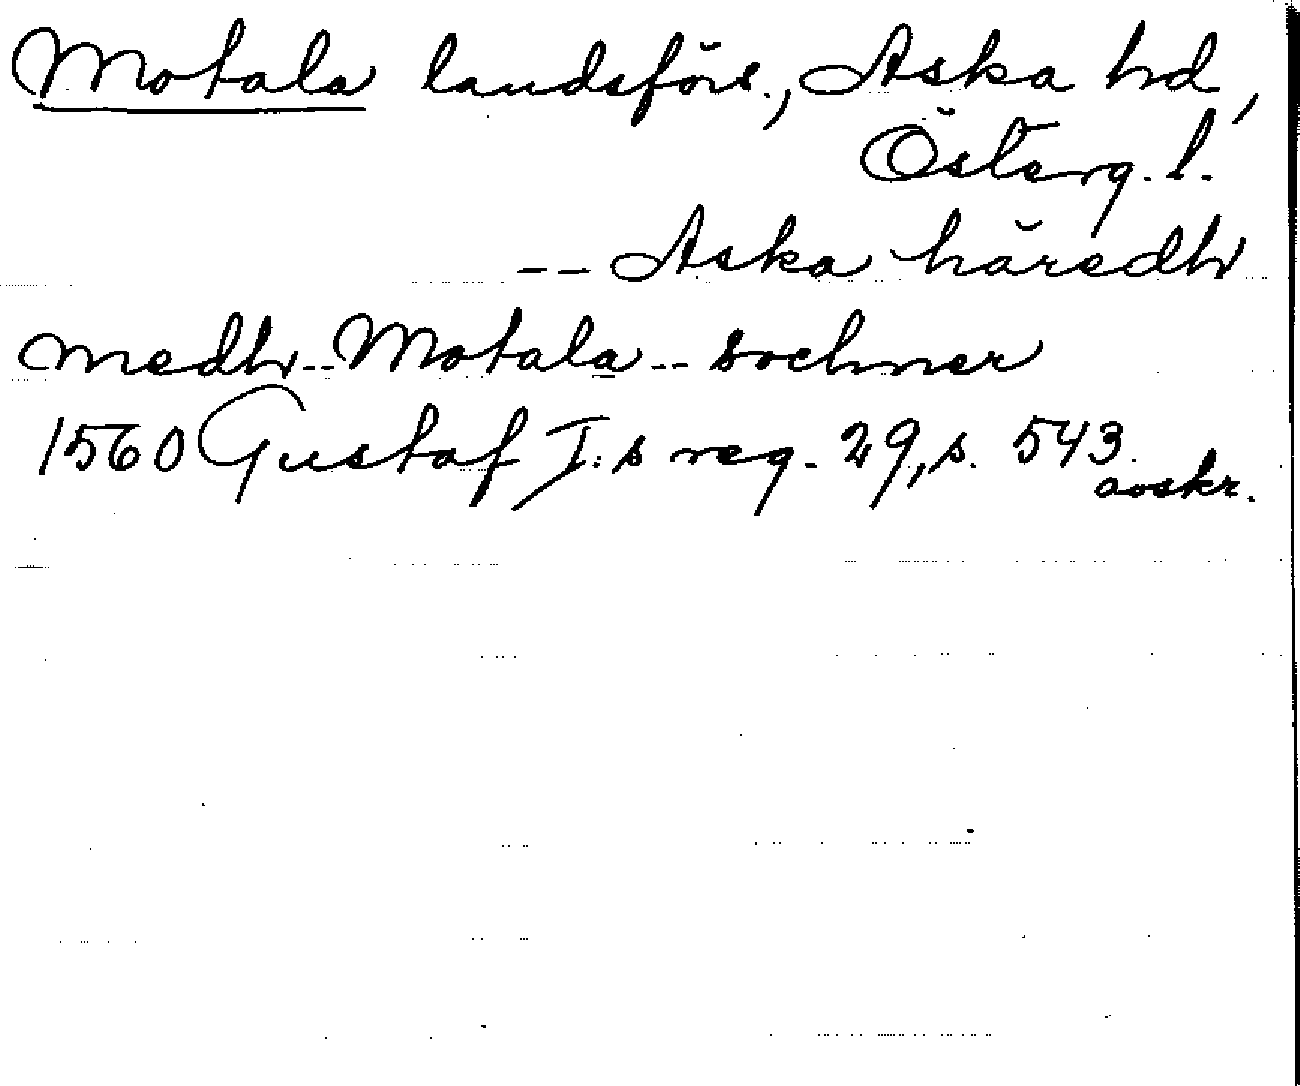 Motala landsförs., Aska hd,
Österg. l.
-- Aska häredh
medh -- Motala -- sochner
1560 Gustaf I:s reg. 29, s. 543.
avskr.